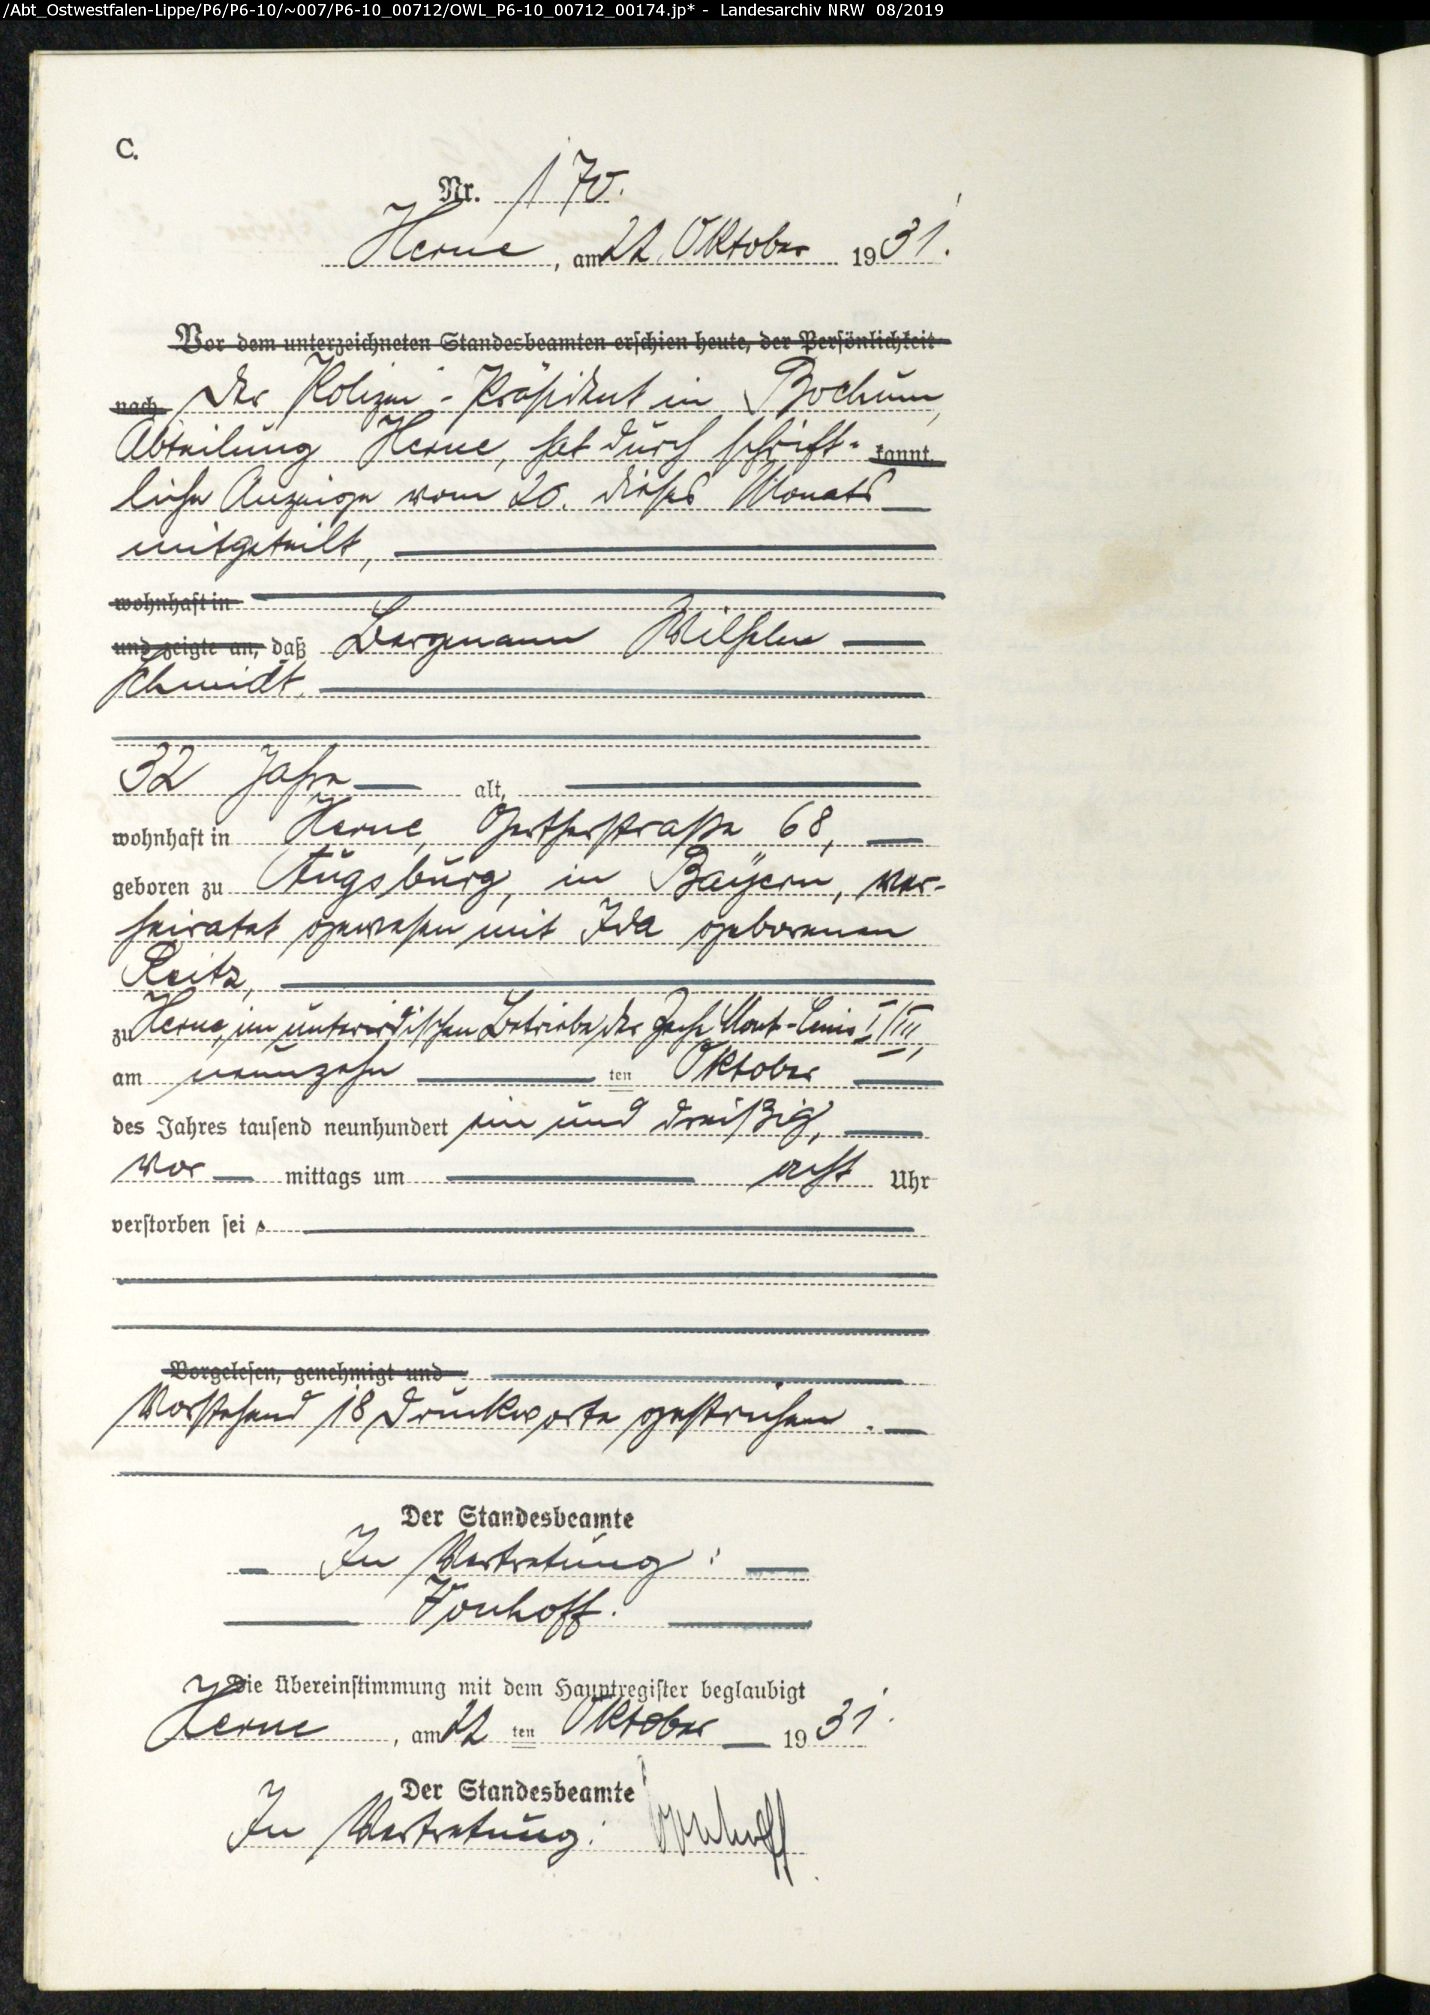 /Abt_Ostwestfalen-Lippe/P6/P6-10/~007/P6-10_00712/OWL_P6-10_00712_00174.jp* - Landesarchiv NRW 08/2019
C.
Nr. 170.
Herne, am 22. Oktober 1931.
Vor dem unterzeichneten Standesbeamten erschien heute, der Persönlichkeit
nach Der Polizei-Präsident in Bochum,
Abteilung Herne, hat durch schrift- kannt,
liche Anzeige vom 20. dieses Monats
mitgeteilt,
wohnhaft in
und zeigte an, daß Bergmann Wilhelm
Schmidt,
32 Jahre alt,
wohnhaft in Herne, Gertherstraße 68,
geboren zu Augsburg, in Bayern, ver-
heiratet gewesen mit Ida geborenen
Reitz,
zu Herne, im unterirdischen Betriebe der Zeche Mont-Cenis I/III,
am neunzehn ten Oktober
des Jahres tausend neunhundert ein und dreißig,
vor mittags um acht Uhr
verstorben sei.
Vorgelesen, genehmigt und
Vorstehend 18 Druckworte gestrichen.
Der Standesbeamte
In Vertretung:
Vonhoff.
Die Übereinstimmung mit dem Hauptregister beglaubigt
Herne, am 22 ten Oktober 1931.
Der Standesbeamte
In Vertretung: Vonhoff